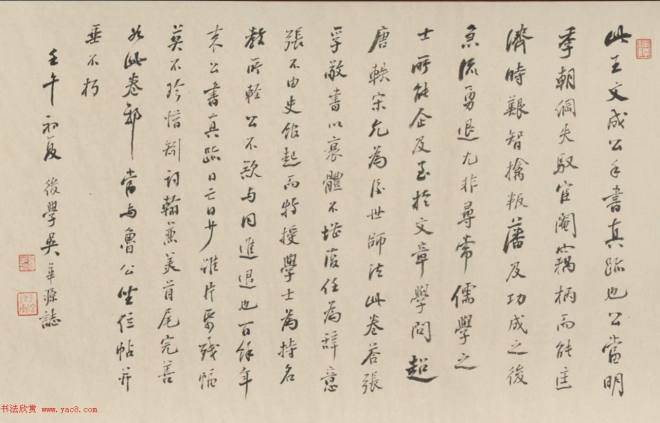 此王文成公手書真跡也公當明
季朝綱失馭宦閹竊柄而能匡
濟時艱智擒叛藩及功成之後
急流勇退尤非尋常儒學之
士所能企及至於文章學問超
唐軼宋允為後世師法此卷答張
孚敬書以衰體不堪復任為辭意
張不由史館起而特授學士為持名
教所輕公不欲與同進退也百餘年
來公書真跡日亡日少雖片紙殘幅
莫不珍惜劍詞翰兼美首尾完善
如此卷邪當與魯公坐位帖並
垂不朽
壬午初夏 後學吳華源誌
书法欣赏 www.yac8.com